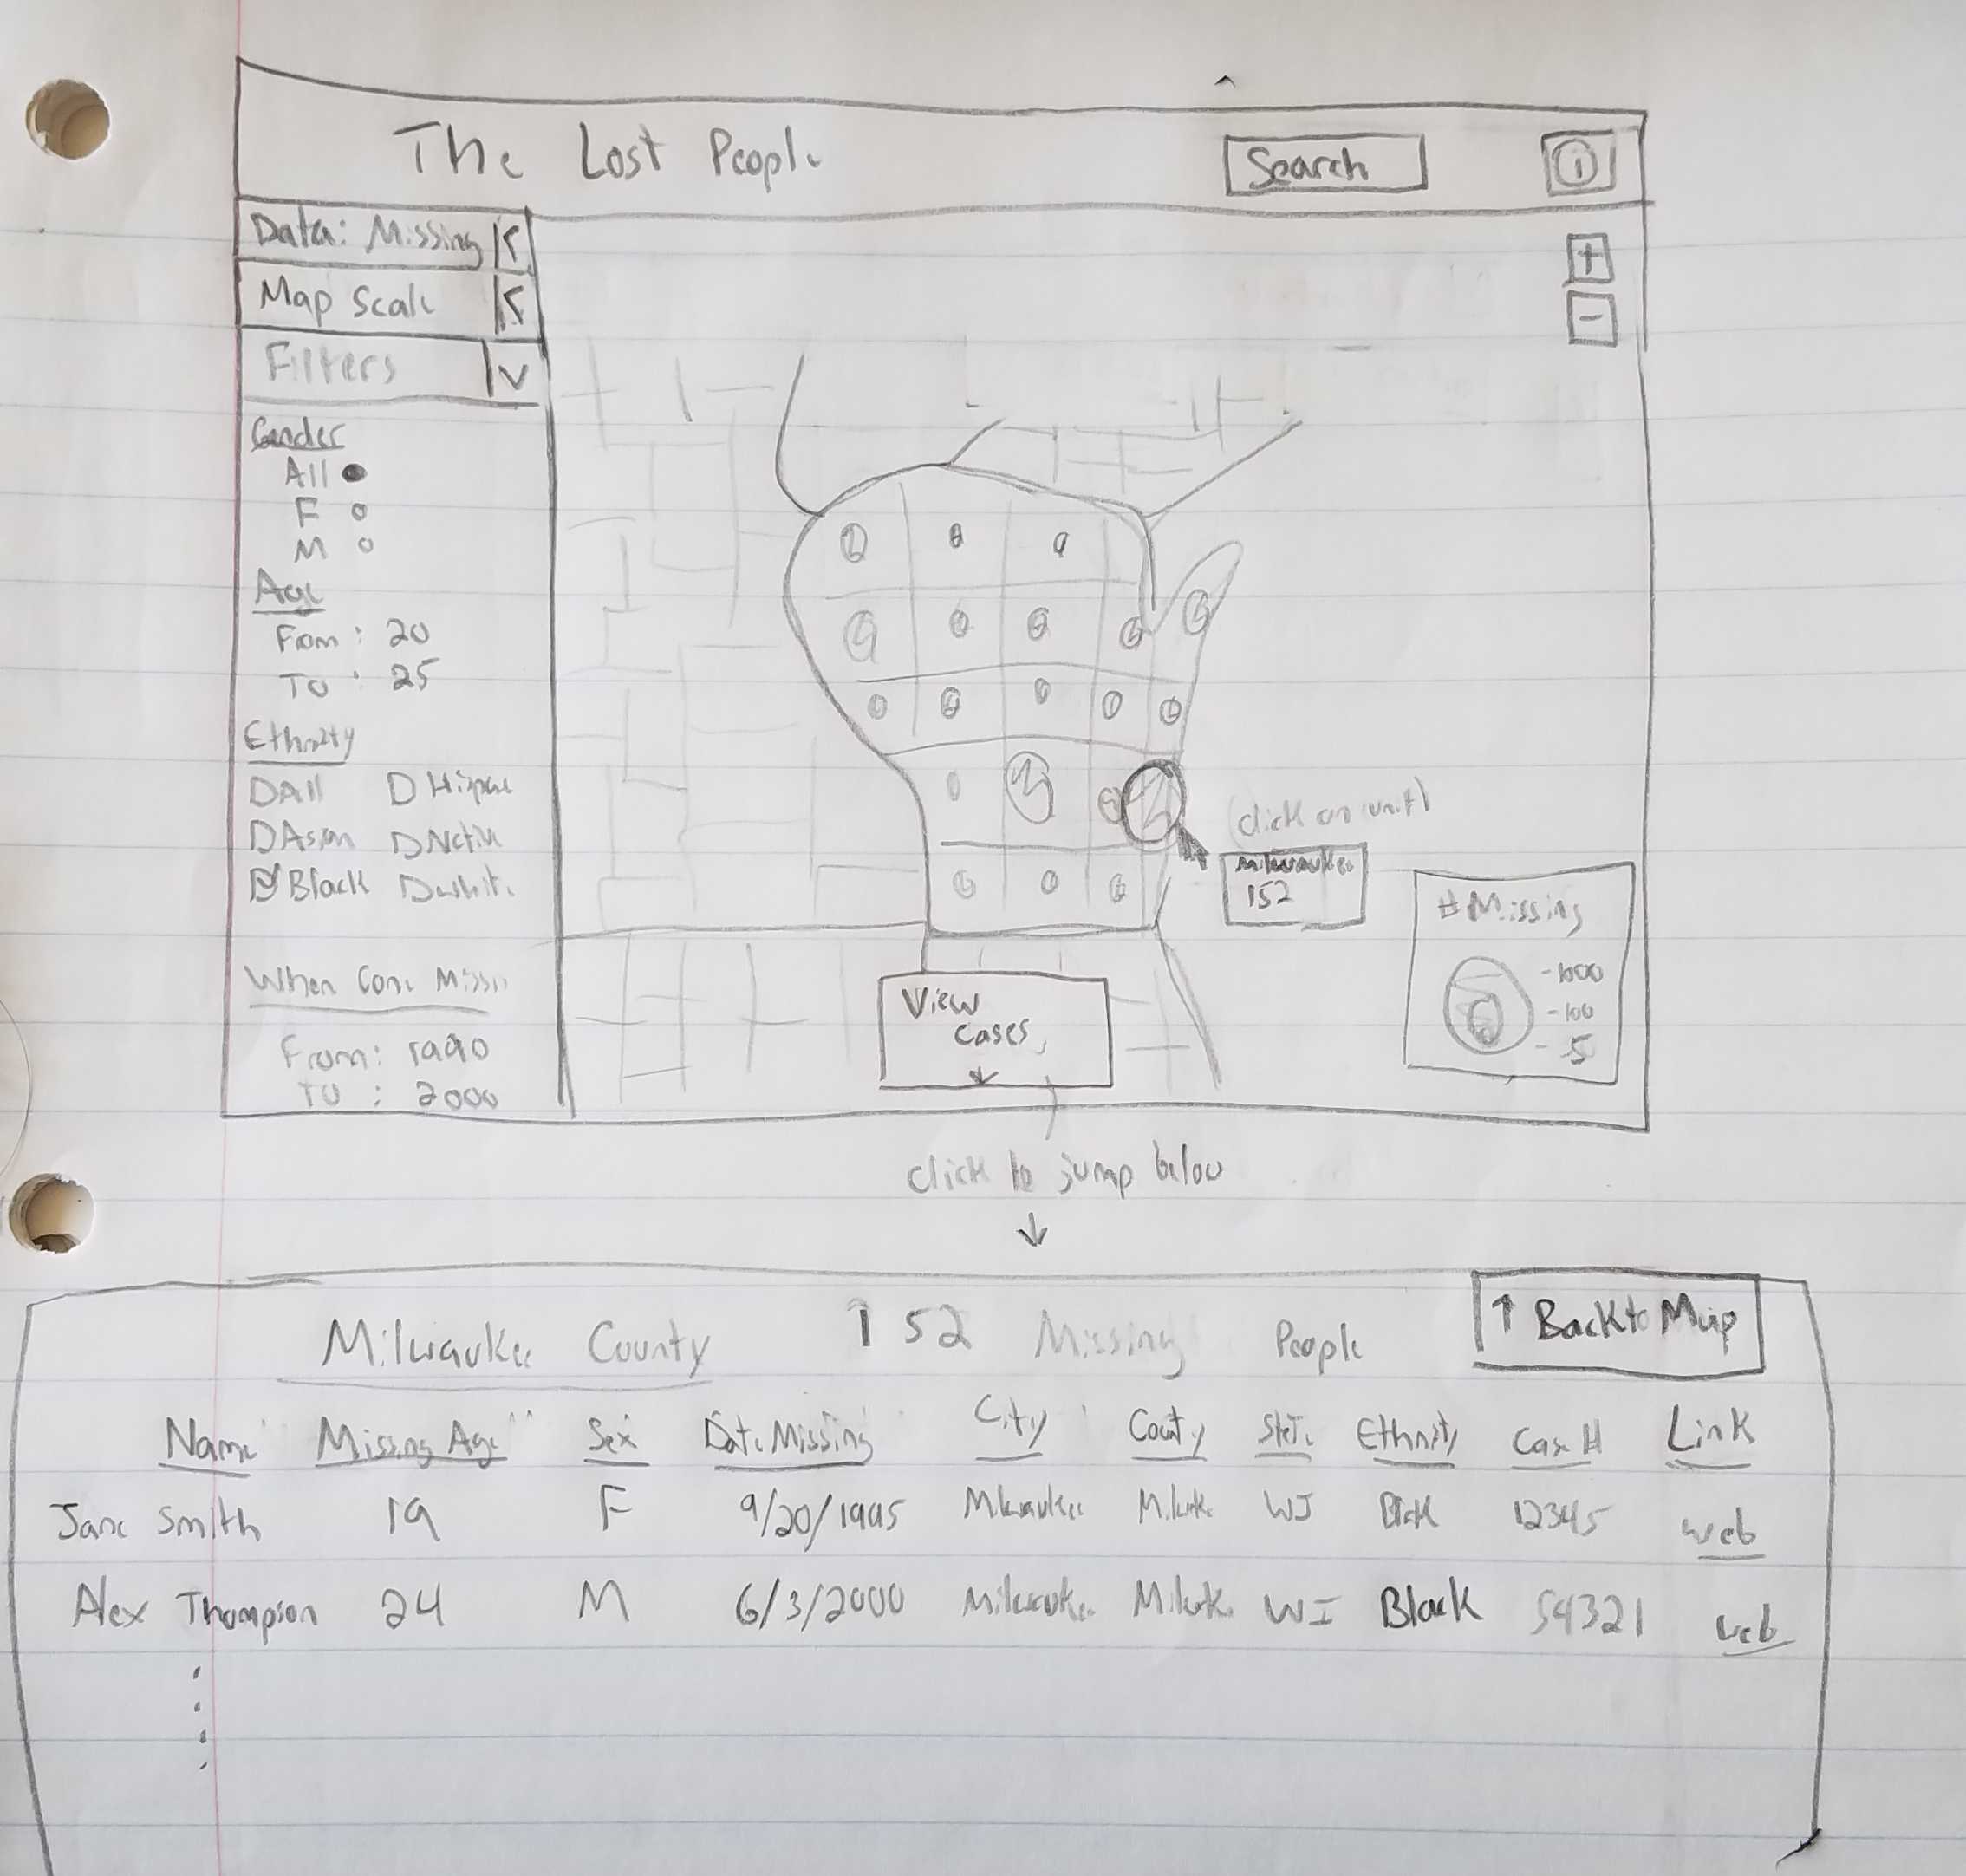 The Lost People
Search
i
Data: Missing
Map Scale
Filters
Gender
All
F
M
Age
From: 20
To: 25
Ethnity
All Hispanic
Asian Native
Black White
When Gone Missin
From: 1990
TO: 2000
+
-
(click on unit)
Milwaukee
152
# Missing
-1000
-100
-5
View
Cases
↓
click to jump below
↓
Milwaukee County 152 Missing People
↑ Back to Map
Name Missing Age Sex Date Missing City County State Ethnity Case # Link
Jane Smith 19 F 9/20/1995 Milwaukee Milwk. WI Black 12345 web
Alex Thompson 24 M 6/3/2000 Milwaukee Milwk. WI Black 54321 web